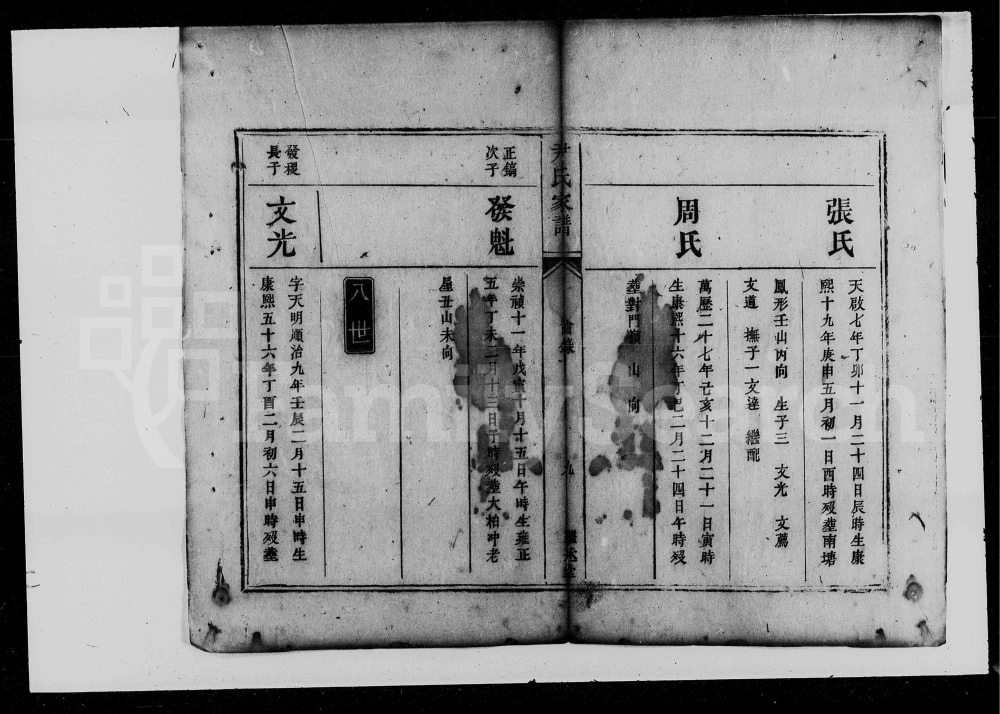 張氏
天啟七年丁卯十一月二十四日辰時生康
熙十九年庚申五月初一日酉時歿塟南塘
鳳形壬山丙向 生子三 文光 文薦
文道 撫子一文達 繼配
周氏
萬歷二十七年己亥十二月二十一日寅時
生康熙十六年丁巳二月二十四日午時歿
塟對門嶺 山 向
尹氏家譜
齒錄
九
正鎬
次子
發魁
崇禎十一年戊寅十月十五日午時生雍正
五年丁未二月十三日子時歿塟大柏冲老
屋丑山未向
八世
發稷
長子
文光
字天明順治九年壬辰二月十五日申時生
康熙五十六年丁酉二月初六日申時歿塟
FamilySearch